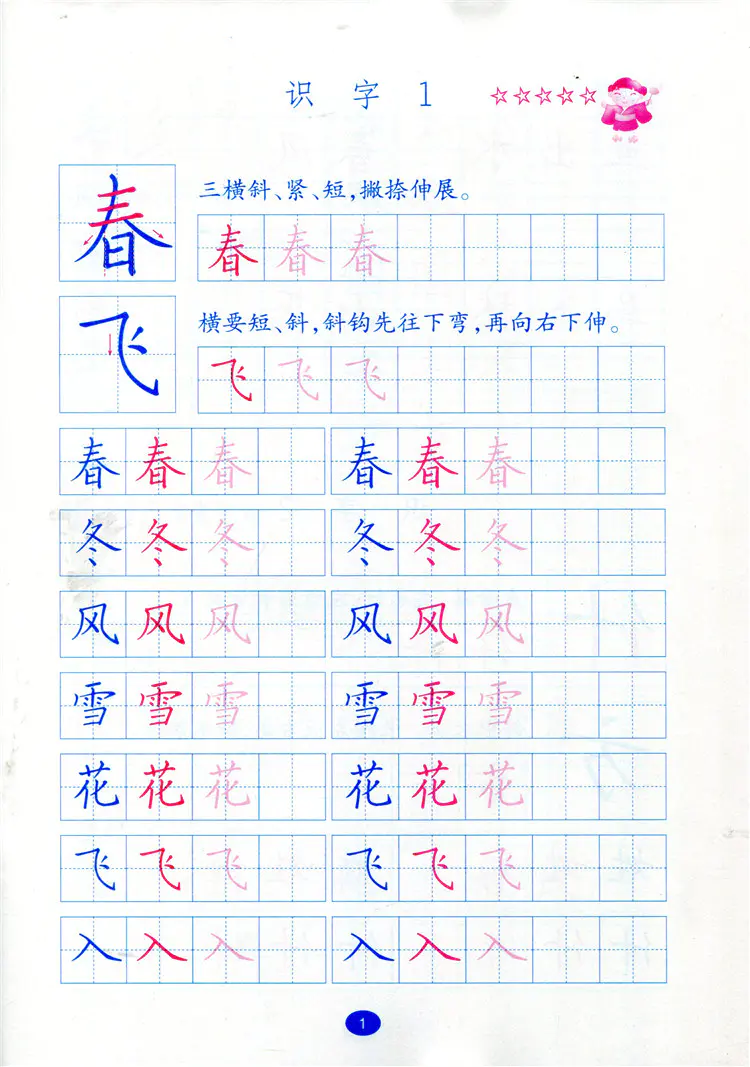 识 字 1 ☆☆☆☆☆
春
三横斜、紧、短,撇捺伸展。
春 春 春
飞
横要短、斜,斜钩先往下弯,再向右下伸。
飞 飞 飞
春 春 春 春 春 春
冬 冬 冬 冬 冬 冬
风 风 风 风 风 风
雪 雪 雪 雪 雪 雪
花 花 花 花 花 花
飞 飞 飞 飞 飞 飞
入 入 入 入 入 入
1